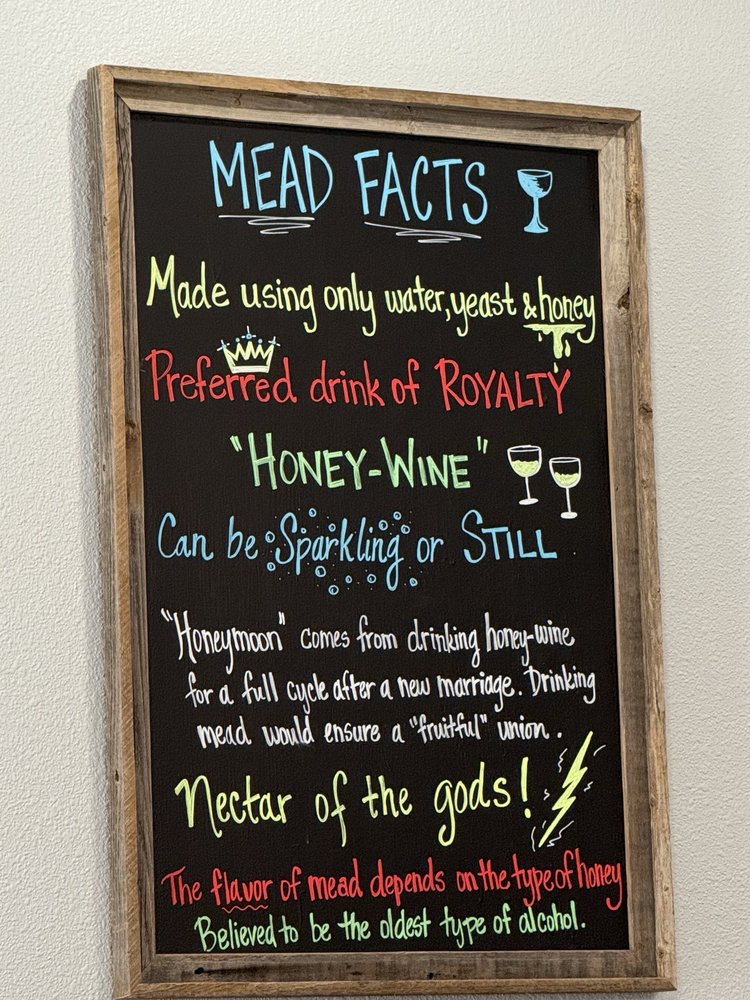 MEAD FACTS
Made using only water, yeast & honey
Preferred drink of ROYALTY
"HONEY-WINE"
Can be Sparkling or STILL
"Honeymoon" comes from drinking honey-wine
for a full cycle after a new marriage. Drinking
mead would ensure a "fruitful" union.
Nectar of the gods!
The flavor of mead depends on the type of honey
Believed to be the oldest type of alcohol.